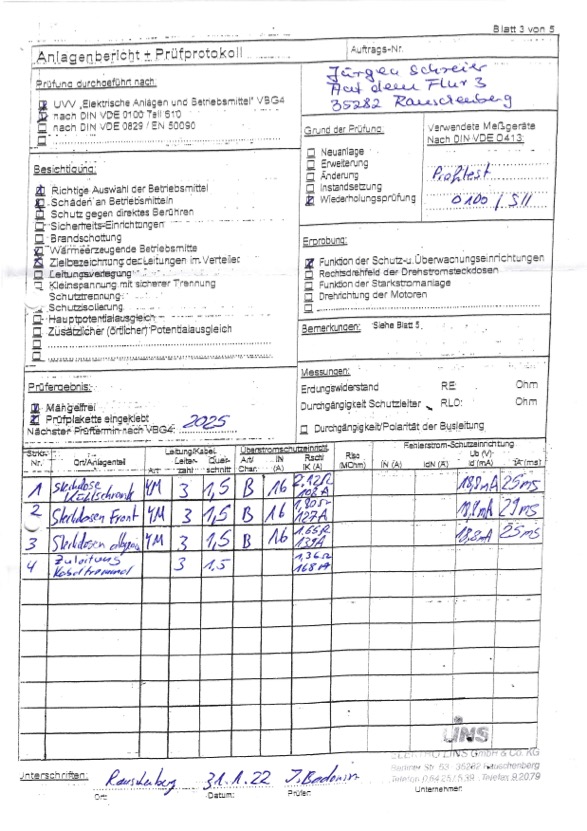 Blatt 3 von 5
Anlagenbericht + Prüfprotokoll
Auftrags-Nr.
Jürgen Schreier
Auf dem Flur 3
35282 Rauschenberg
Prüfung durchgeführt nach:
UVV „Elektrische Anlagen und Betriebsmittel" VBG4
nach DIN VDE 0100 Teil 610
nach DIN VDE 0829 / EN 50090
Grund der Prüfung:
Neuanlage
Erweiterung
Änderung
Instandsetzung
Wiederholungsprüfung
Verwendete Meßgeräte
Nach DIN VDE 0413:
Profitest
0100 / SII
Besichtigung:
Richtige Auswahl der Betriebsmittel
Schäden an Betriebsmitteln
Schutz gegen direktes Berühren
Sicherheits-Einrichtungen
Brandschottung
Wärmeerzeugende Betriebsmitte
Zielbezeichnung der Leitungen im Verteiler
Leitungsverlegung
Kleinspannung mit sicherer Trennung
Schutztrennung
Schutzisolierung
Hauptpotentialausgleich
Zusätzlicher (örtlicher) Potentialausgleich
Erprobung:
Funktion der Schutz-u. Überwachungseinrichtungen
Rechtsdrehfeld der Drehstromsteckdosen
Funktion der Starkstromanlage
Drehrichtung der Motoren
Bemerkungen: Siehe Blatt 5
Prüfergebnis:
Mängelfrei
Prüfplakette eingeklebt
Nächster Prüftermin nach VBG4: 2025
Messungen:
Erdungswiderstand RE: Ohm
Durchgängigkeit Schutzleiter RLO: Ohm
Durchgängigkeit/Polarität der Busleitung
Strom- Nr. Ort/Anlagenteil Leitung/Kabel Art Leiter- zahl Quer- schnitt Überstromschutzeinricht. Art/ Char. IN (A) Rsch/ IK (A) Riso (MOhm) Fehlerstrom-Schutzeinrichtung IN (A) IdN (A) Ub (V) Id (mA) tA (ms)
1 Steckdose Kühlschrank YM 3 1,5 B 16 2,12Ω 108A 18,8mA 25ms
2 Steckdosen Front YM 3 1,5 B 16 127A 29ms
3 Steckdosen YM 3 1,5 B 16 18,8mA 25ms
4 Zuleitung Kabeltrommel 3 1,5 1,36Ω 168A
LINS
ELEKTRO LINS GmbH & Co. KG
35282 Rauschenberg
Unterschriften: Rauschenberg 31.1.22
Ort: Datum: Prüfer: Unternehmer: